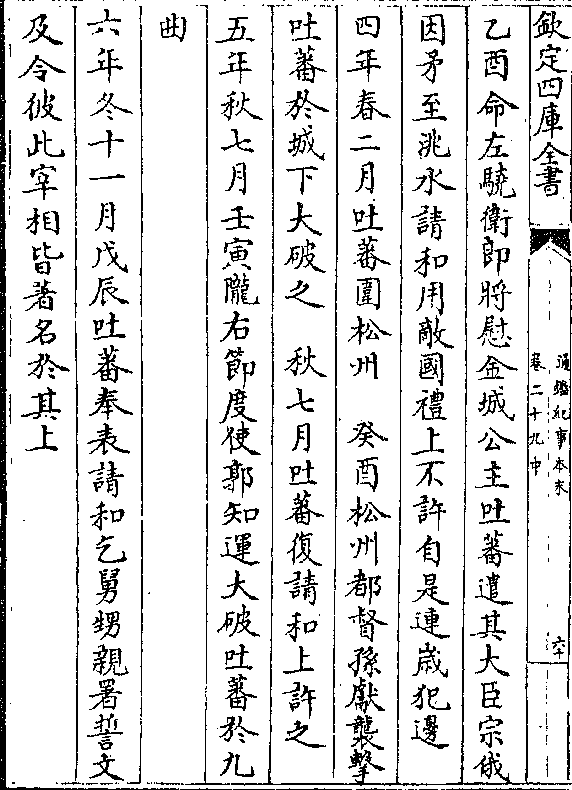 欽定四庫全書
通鑑紀事本末
卷二十九中
六十
乙酉命左驍衛郎將慰金城公主吐蕃遣其大臣宗俄
因矛至洮水請和用敵國禮上不許自是連歲犯邊
四年春二月吐蕃圍松州　癸酉松州都督孫獻襲擊
吐蕃於城下大破之　秋七月吐蕃復請和上許之
五年秋七月壬寅隴右節度使郭知運大破吐蕃於九
曲
六年冬十一月戊辰吐蕃奉表請和乞舅甥親署誓文
及令彼此宰相皆著名於其上